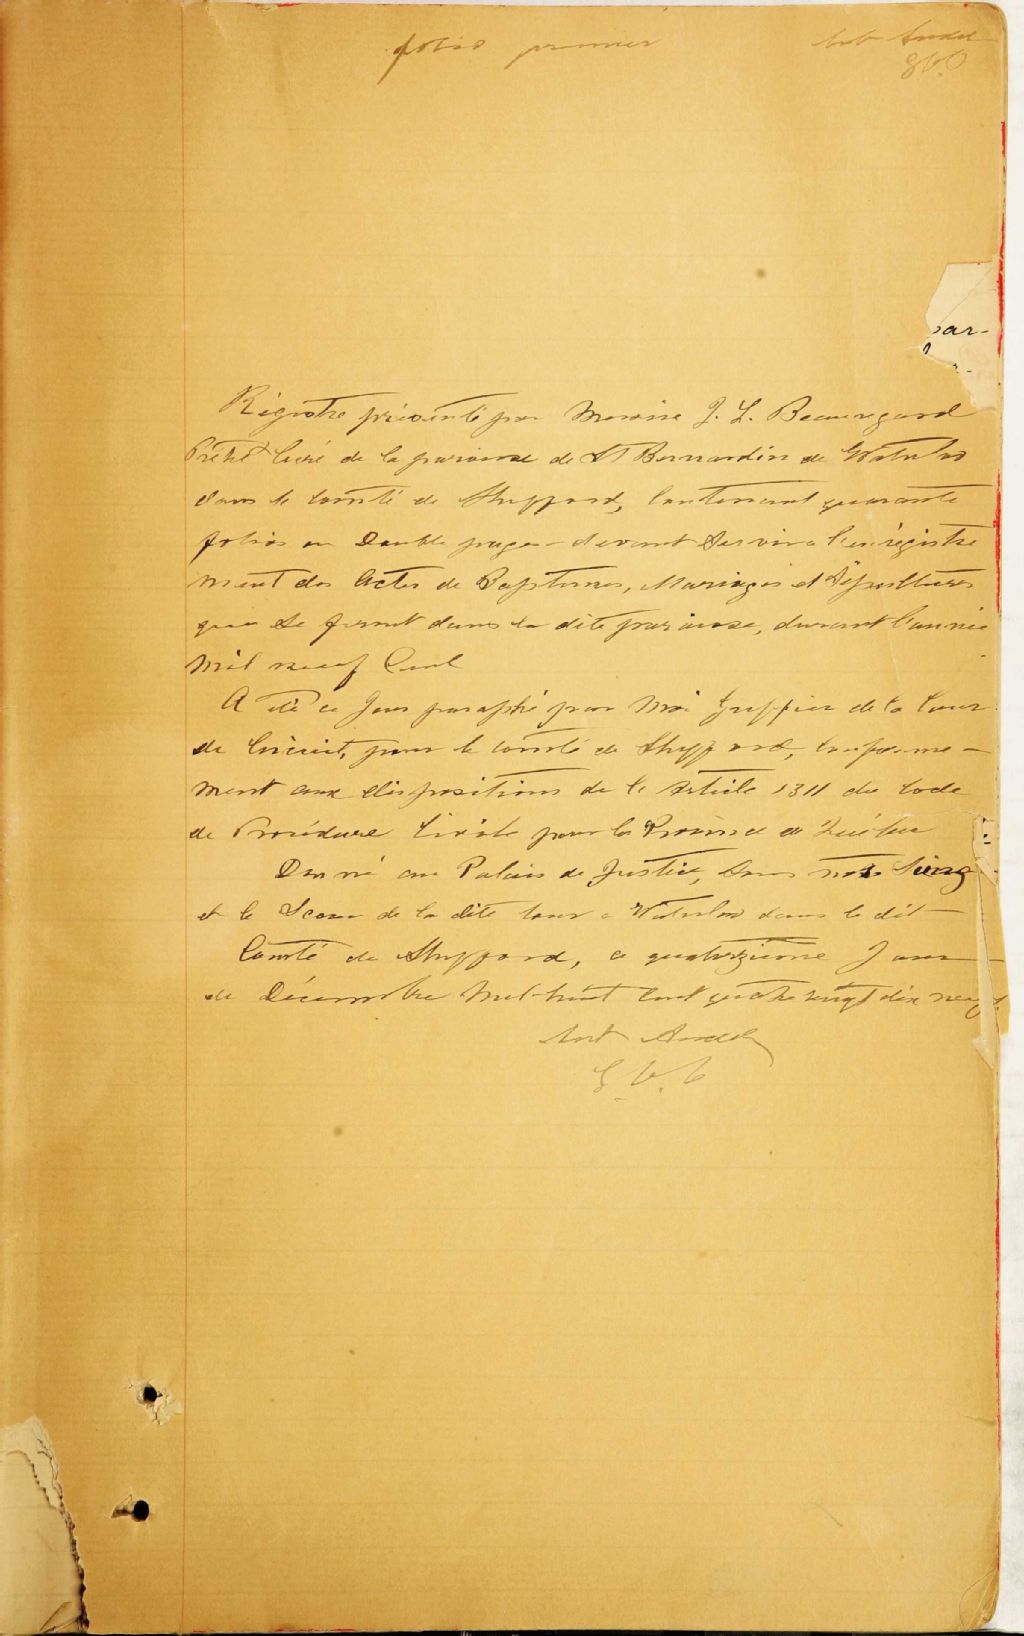 folio premier
G.C.C
par-
Régistre présenté par Messire J. L. Beauregard
Prêtre Curé de la paroisse de St Bernardin de Waterloo
dans le Comté de Shefford, Contenant quarante
folios ou Double pages devant servir a l'enrégistre
ment des Actes de Baptêmes, Mariages et Sépultures
qui se feront dans la dite paroisse, durant l'année
Mil neuf Cent
A été ce Jour paraphé par Moi Greffier de la Cour
de Circuit, pour le Comté de Shefford, conformé-
ment aux dispositions de l'Article 1311 du Code
de Procédure Civile pour la Province de Québec
Donné au Palais de Justice, sous nos Seing
et le Sceau de la dite Cour a Waterloo dans le dit
Comté de Shefford, ce quatorzieme Jour
de Décembre Mil-huit Cent quatre vingt dix neuf.
G.C.C